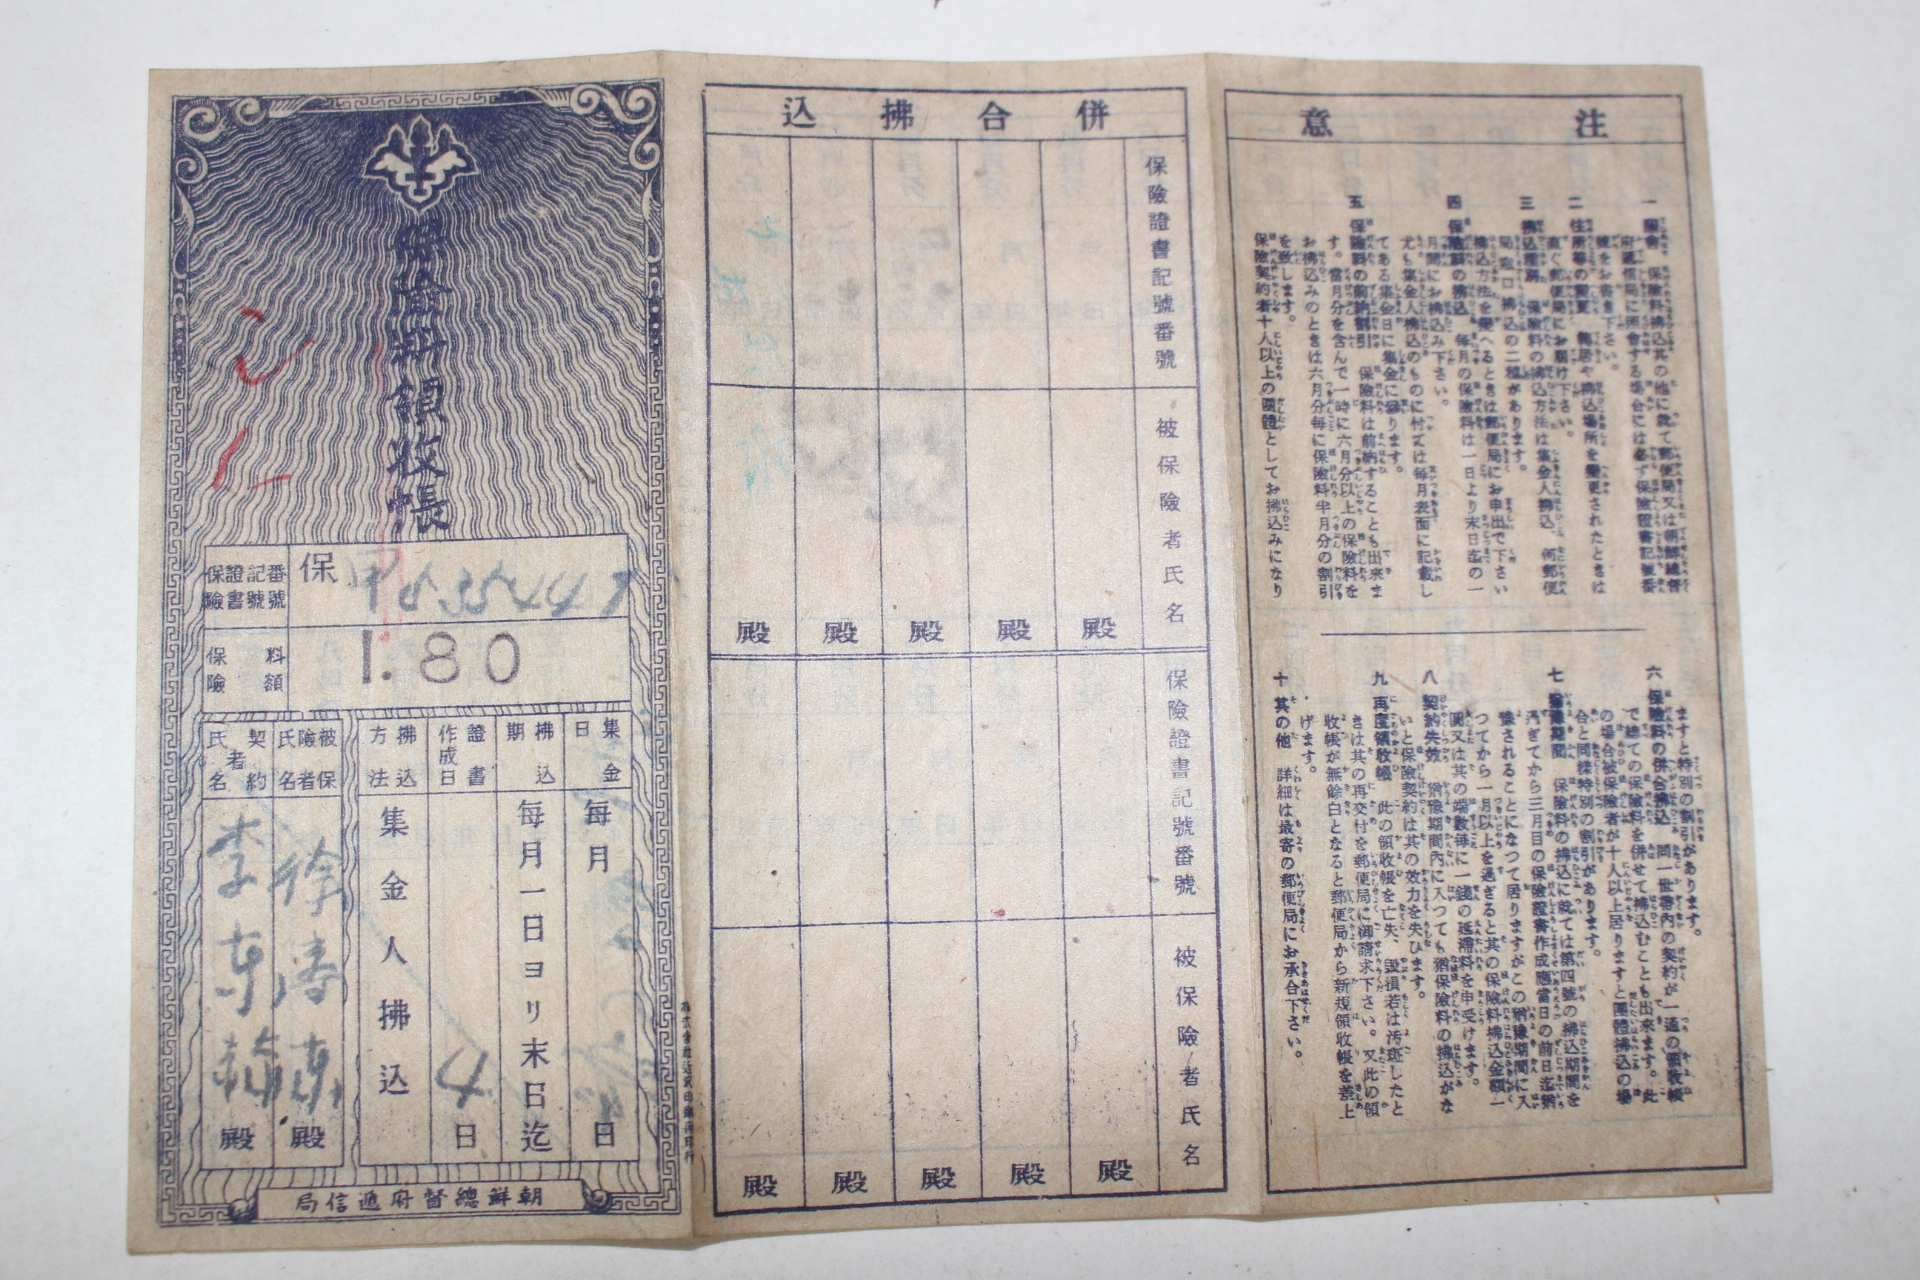 保險料領收帳
保險證書記號番號
保
保險料額
1.80
集金日
每月
日
拂込期
每月一日ヨリ末日迄
證書作成日
日
拂込方法
集金人拂込
被保險者氏名
殿
契約者氏名
李東
殿
朝鮮總督府遞信局
併合拂込
保險證書記號番號
被保險者氏名
殿
殿
殿
殿
殿
保險證書記號番號
被保險者氏名
殿
殿
殿
殿
殿
注意
一 照會 保險料拂込其の他に就て郵便局又は朝鮮總督
府遞信局に照會する場合には必ず保險證書記號番
號をお書き下さい。
二 住所等の變更 轉居や拂込場所を變更されたときは
直ぐ郵便局にお屆け下さい。
三 拂込種別 保險料の拂込方法は集金人拂込、何郵便
局窓口拂込の二種があります。
拂込方法を變へるときは郵便局にお申出で下さい
四 保險料の拂込 每月の保險料は一日より末日迄の一
月間にお拂込み下さい。
尤も集金人拂込のものに付ては每月表面に記載し
てある集金日に集金に參ります。
五 保險料の前納割引 保險料は前納することも出來ま
す。當月分を含んで一時に六月分以上の保險料を
お拂込みのときは六月分每に保險料半月分の割引
を致します。
保險契約者十人以上の團體としてお拂込みになり
ますと特別の割引があります。
六 保險料の併合拂込 同一世帶內の契約が一通の領收帳
で總ての保險料を併せて拂込むことも出來ます。此
の場合被保險者が十人以上居りますと團體拂込の場
合と同樣特別の割引があります。
七 猶豫期間 保險料の拂込に就ては第四號の拂込期間を
過ぎてから三月目の保險證書作成應當日の前日迄猶
豫されることになつて居りますがこの猶豫期間に入
つてから一月以上を過ぎると其の保險料拂込金額一
圓又は其の端數每に一錢の延滯料を申受けます。
八 契約失效 猶豫期間內に入つても猶保險料の拂込がな
いと保險契約は其の效力を失ひます。
九 再度領收帳 此の領收帳を亡失、毀損若は汚斑したと
きは其の再交付を郵便局に御請求下さい。又此の領
收帳が無餘白となると郵便局から新規領收帳を差上
げます。
十 其の他 詳細は最寄の郵便局にお承合下さい。